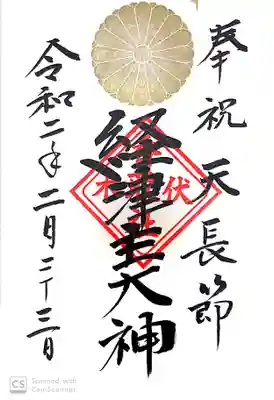 奉祝天長節
経津主大神
令和二年二月二十三日
CS Scanned with
CamScanner